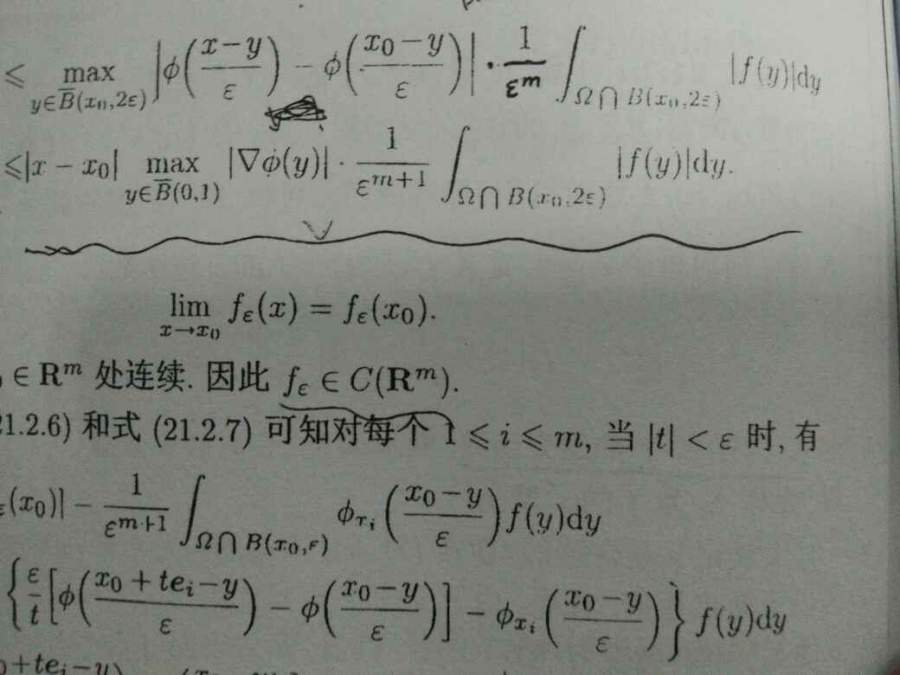 ⩽ max_{y∈B̅(x₀,2ε)} |ϕ((x−y)/ε) − ϕ((x₀−y)/ε)| · 1/εᵐ ∫_{Ω⋂B(x₀,2ε)} |f(y)|dy
⩽|x − x₀| max_{y∈B̅(0,1)} |∇ϕ(y)| · 1/ε^{m+1} ∫_{Ω⋂B(x₀,2ε)} |f(y)|dy.
lim_{x→x₀} f_ε(x) = f_ε(x₀).
∈ Rᵐ 处连续. 因此 f_ε ∈ C(Rᵐ).
21.2.6) 和式 (21.2.7) 可知对每个 1 ⩽ i ⩽ m, 当 |t| < ε 时, 有
ε(x₀)] − 1/ε^{m+1} ∫_{Ω⋂B(x₀,ε)} ϕ_{x_i}((x₀−y)/ε) f(y)dy
{ε/t [ϕ((x₀ + te_i − y)/ε) − ϕ((x₀−y)/ε)] − ϕ_{x_i}((x₀−y)/ε)} f(y)dy
+te_i−y)